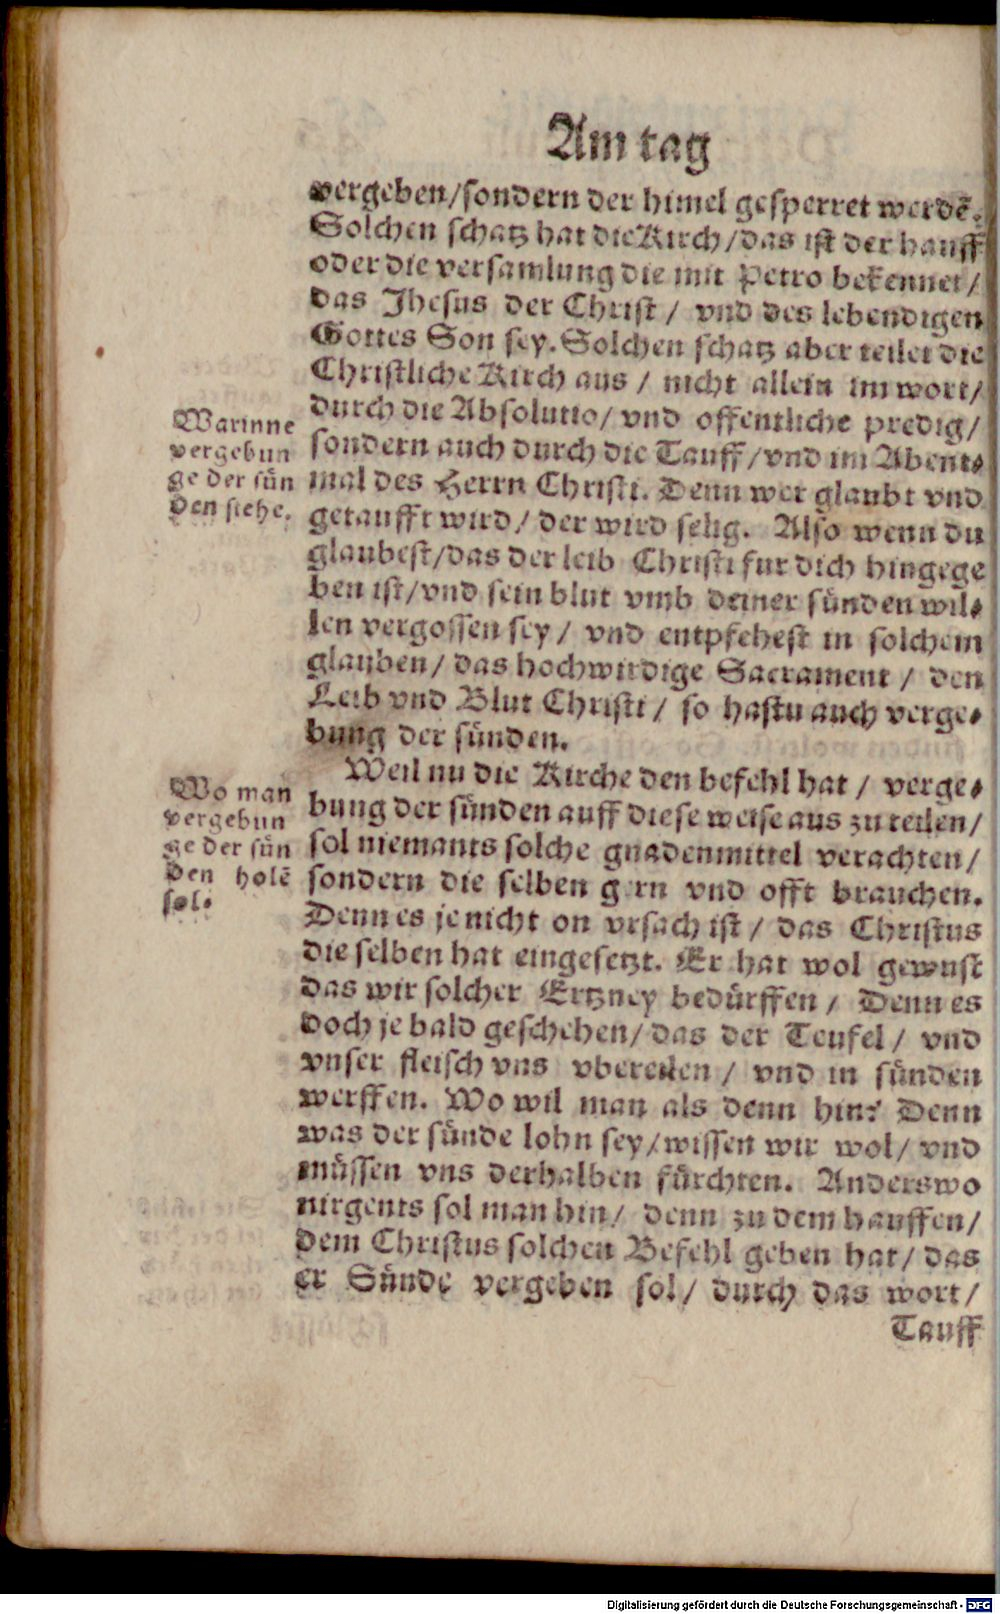 Am tag
vergeben/sondern der himel gesperret werdẽ.
Solchen schatz hat die Kirch/das ist der hauff
oder die versamlung die mit Petro bekennet/
das Jhesus der Christ/ vnd des lebendigen
Gottes Son sey. Solchen schatz aber teilet die
Christliche Kirch aus/ nicht allein im wort/
durch die Absolutio/ vnd offentliche predig/
sondern auch durch die Tauff/vnd im Abent⸗
mal des Herrn Christi. Denn wer glaubt vnd
getaufft wird/ der wird selig. Also wenn du
glaubest/das der leib Christi fur dich hingege
ben ist/vnd sein blut vmb deiner sünden wil⸗
len vergossen sey/ vnd entpfehest in solchem
glauben/ das hochwirdige Sacrament/ den
Leib vnd Blut Christi/ so hastu auch verge⸗
bung der sünden.
Warinne
vergebun
ge der sün
den stehe.
Weil nu die Kirche den befehl hat/ verge⸗
bung der sünden auff diese weise aus zu teilen/
sol niemants solche gnadenmittel verachten/
sondern die selben gern vnd offt brauchen.
Denn es je nicht on vrsach ist/ das Christus
die selben hat eingesetzt. Er hat wol gewust
das wir solcher Ertzney bedürffen/ Denn es
doch je bald geschehen/das der Teufel/ vnd
vnser fleisch vns vbereilen/ vnd in sünden
werffen. Wo wil man als denn hin? Denn
was der sünde lohn sey/wissen wir wol/ vnd
müssen vns derhalben fürchten. Anderswo
nirgents sol man hin/ denn zu dem hauffen/
dem Christus solchen Befehl geben hat/ das
er Sünde vergeben sol/ durch das wort/
Tauff
Wo man
vergebun
ge der sün
den holẽ
sol.
Digitalisierung gefördert durch die Deutsche Forschungsgemeinschaft - DFG